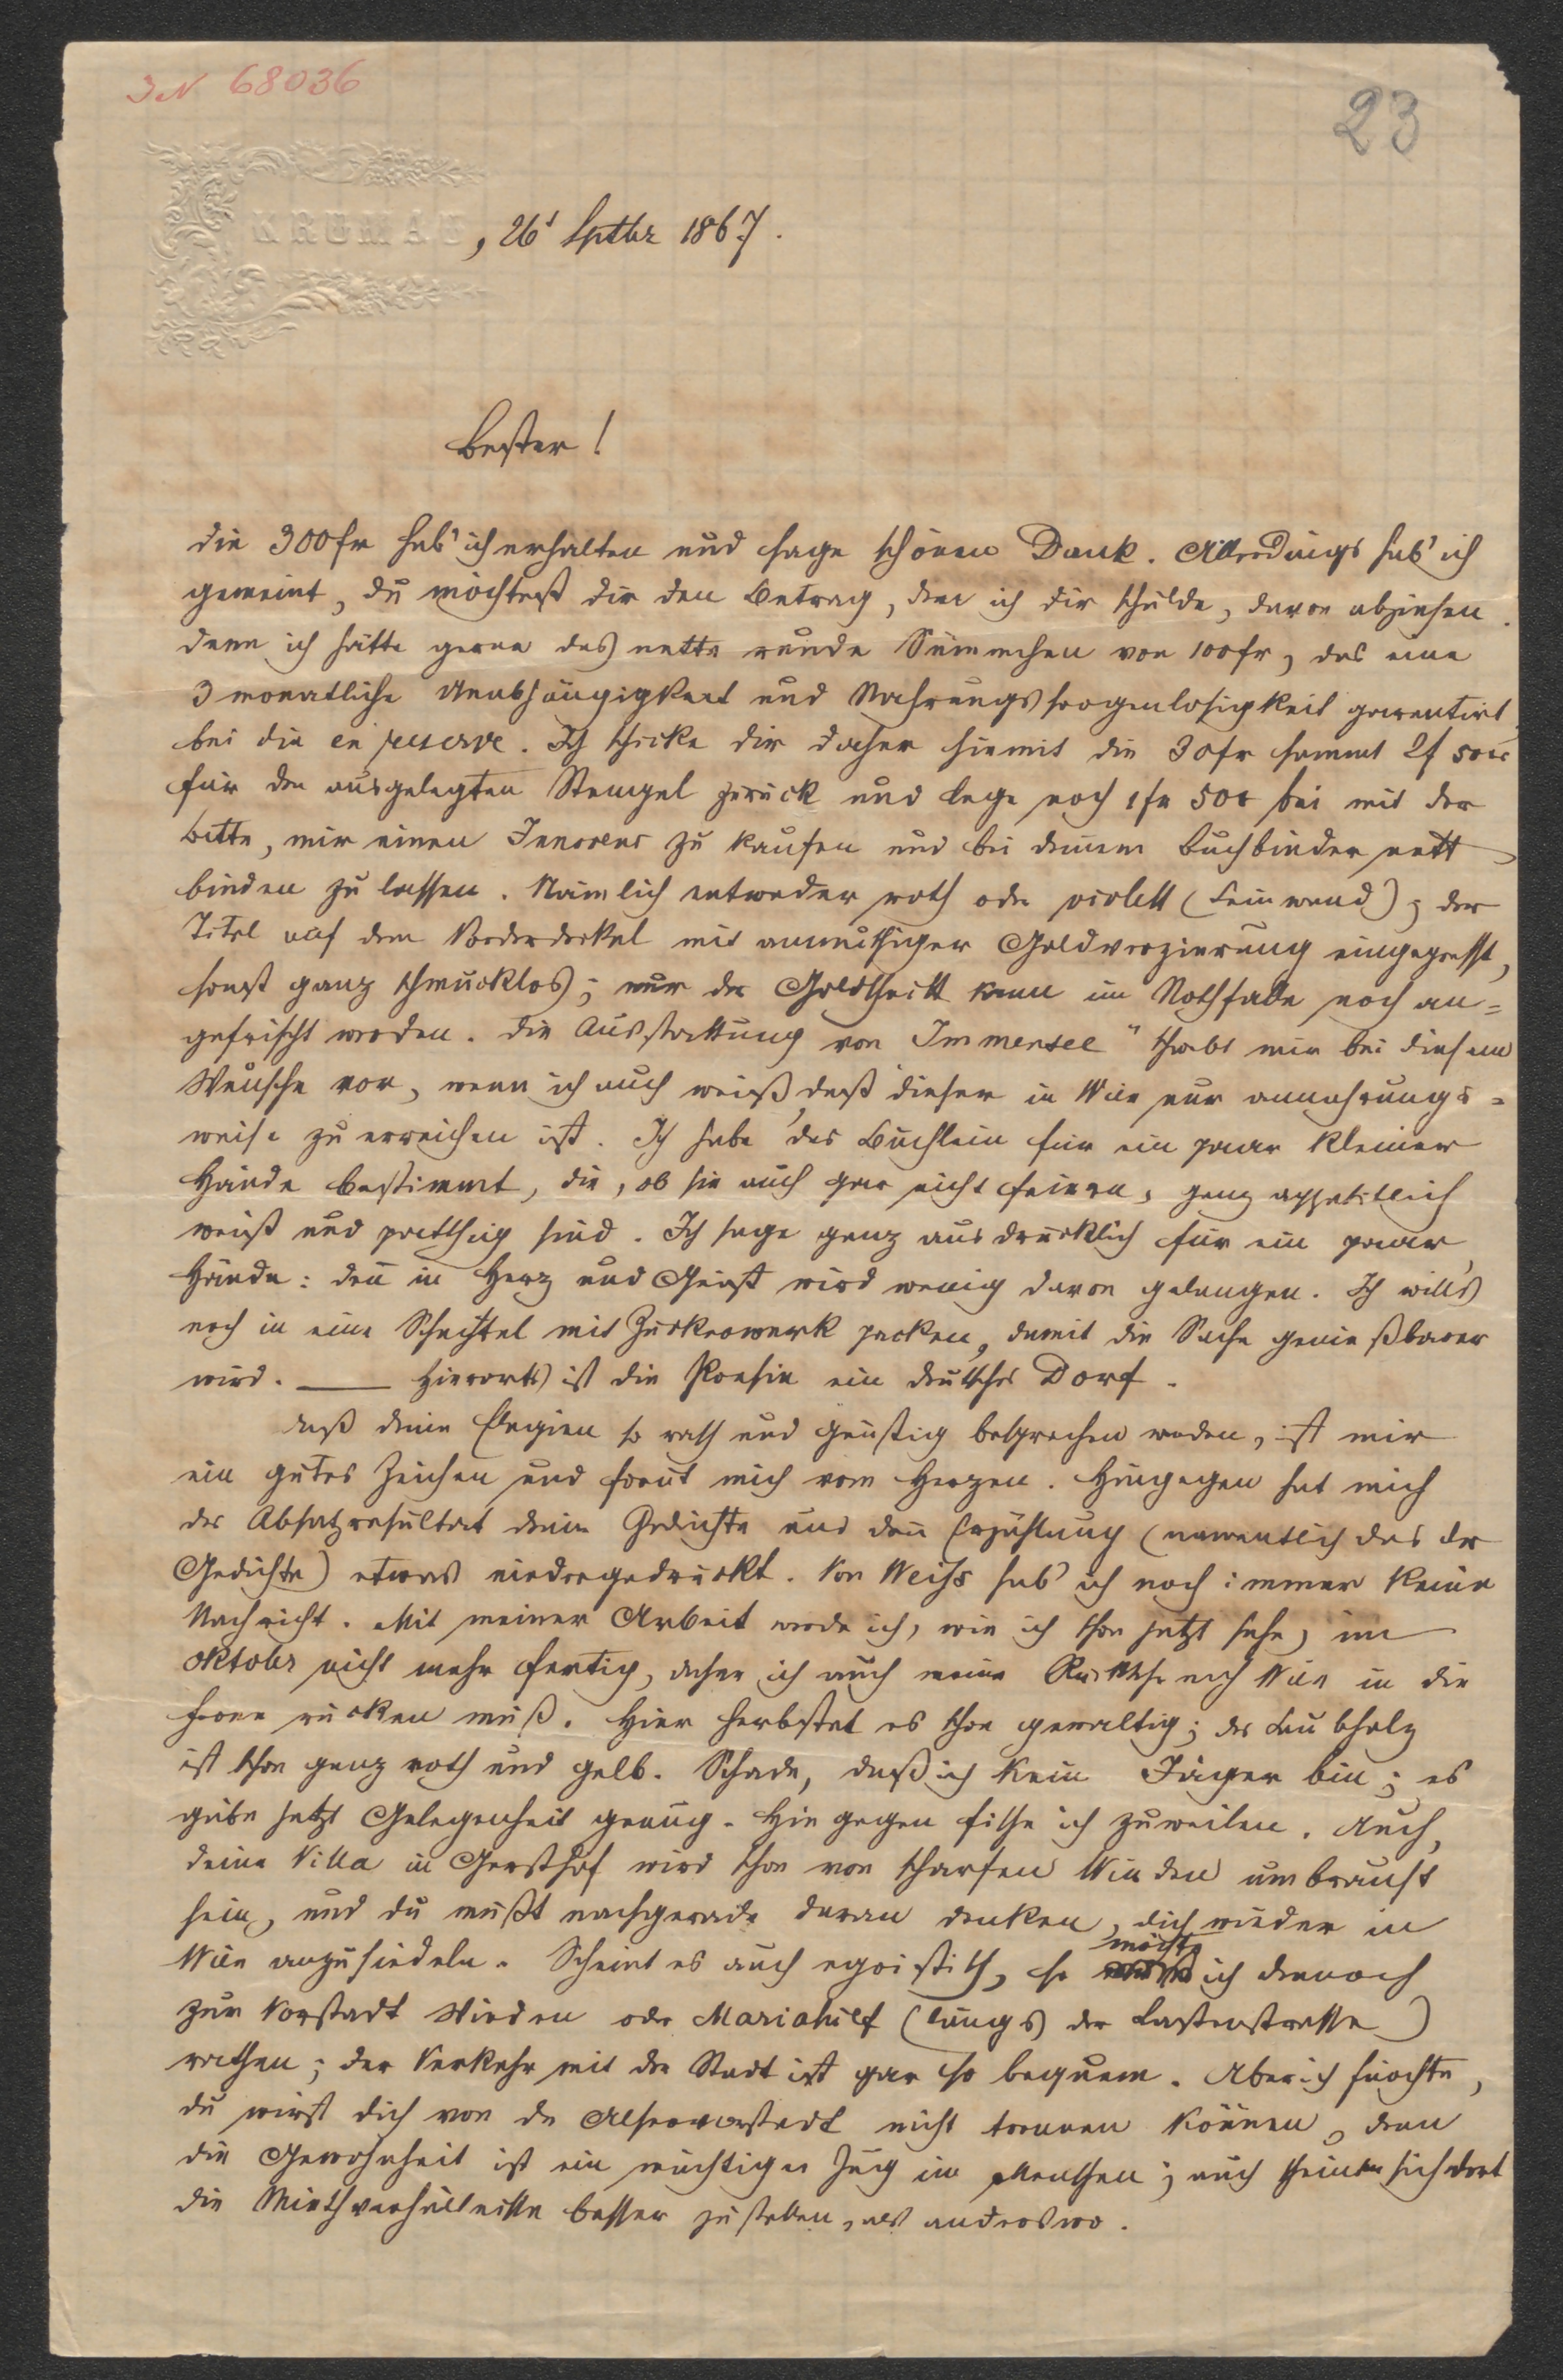 IN 68036
23
KRUMAU, 26t Sptbr 1867.
Bester!
Die 300fr hab' ich erhalten und sage schönen Dank. Allerdings hab' ich
gemeint, du möchtest dir den Betrag, den ich dir schulde, davon abziehen.
denn ich hätte gerne das nette runde Sümmchen von 100fr, das eine
3 monatliche Unabhängigkeit und Nahrungssorgenlosigkeit garantirt,
bei dir en reserve. Ich schicke dir daher hiemit die 30fr sammt 2f 50
für den ausgelegten Stempel zurück und lege noch 1fr 50 bei mit der
Bitte, mir einen Innocens zu kaufen und bei deinem Buchbinder nett
binden zu lassen. Nämlich entweder roth oder violett (Leinwand); der
Titel auf dem Vorderdeckel mit anmuthiger Goldverzierung eingepresst,
sonst ganz schmucklos; nur der Goldschnitt kann im Nothfalle noch an=
gefrischt werden. Die Ausstattung von Immensee" schwebt mir bei diesem
Wunsche vor, wenn ich auch weiß, daß dieser in Wien nur annährungs=
weise zu erreichen ist. Ich habe das Büchlein für ein paar kleiner
Hände bestimmt, die, ob sie auch gar nicht feiern, ganz appetitlich
weiß und patschig sind. Ich sage ganz ausdrücklich für ein paar
Hände: den in Herz und Geist wird wenig davon gelangen. Ich will's
noch in eine Schachtel mit Zuckerwerk packen, damit die Sache genießbarer
wird. — Hierorts ist die Poesie ein deutsches Dorf.
Daß deine Elegien so rasch und günstig besprochen werden, ist mir
ein gutes Zeichen und freut mich vom Herzen. Hingegen hat mich
das Absatzresultat deiner Gedichte und den Erzählung (namentlich das der
Gedichte) etwas niedergedrückt. Von Weiss hab' ich noch immer keine
Nachricht. Mit meiner Arbeit werde ich, wie ich schon jetzt sehe, im
Oktober nicht mehr fertig, daher ich auch meine Rückkehr nach Wien in die
Ferne rücken muß. Hier herbstet es schon gewaltig; das Laubholz
ist schon ganz roth und gelb. Schade, daß ich kein Jäger bin; es
gäbe jetzt Gelegenheit genug. Hingegen fische ich zuweilen. Auch
deine Villa in Gersthof wird schon von scharfen Winden umbraust
sein, und du mußt nachgerade daran denken, dich wieder in
Wien anzusiedeln. Scheint es auch egoistisch, so möchte ich dennoch
zur Vorstadt Wieden oder Mariahilf (längs der Lastenstrasse)
rathen; der Verkehr mit der Stadt ist gar so bequem. Aber ich fürchte,
du wirst dich von der Alservorstadt nicht trennen können, denn
die Gewohnheit ist ein mächtiger Zug im Menschen; auch scheinen sich dort
die Miethverhältnisse besser zu stellen, als anderswo.